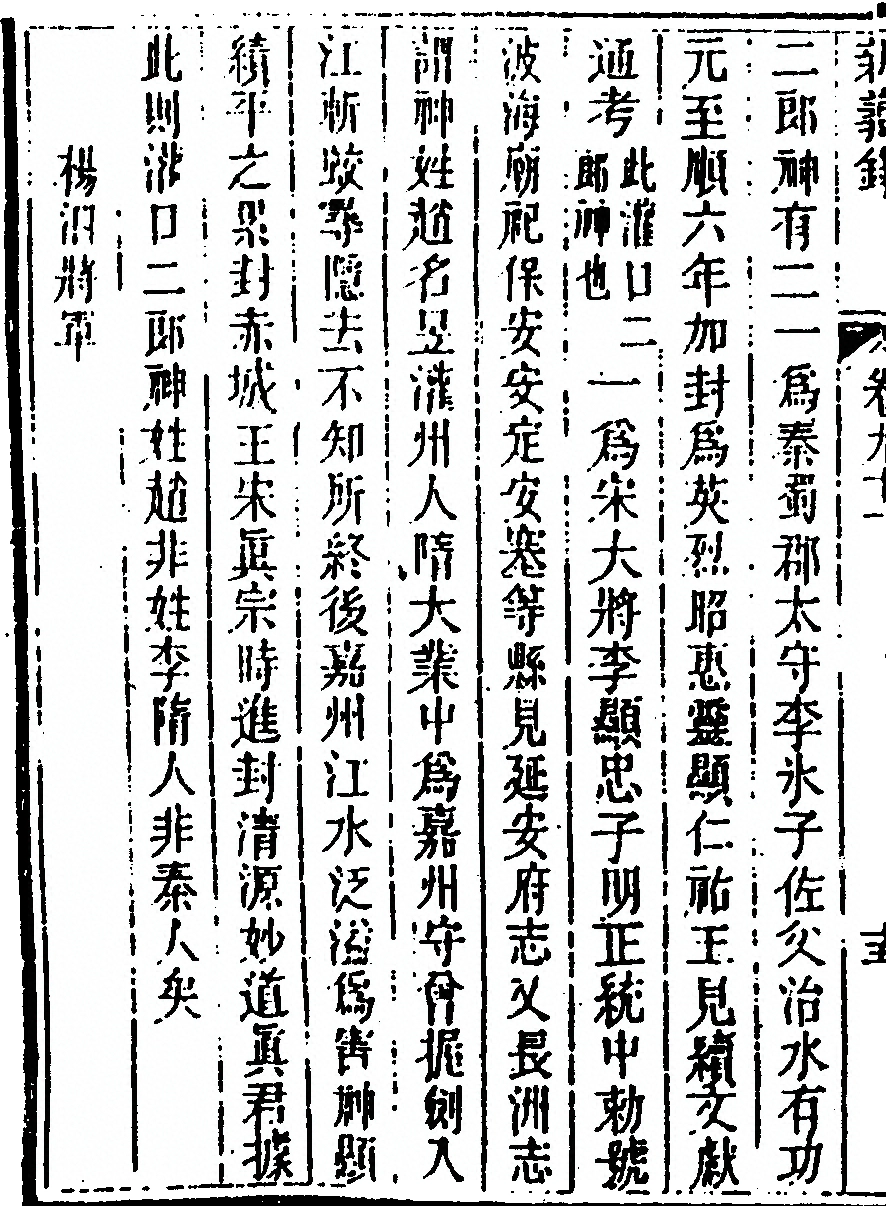 二郎神有二一爲秦蜀郡太守李氷子佐父治水有功
元至順六年加封爲英烈昭惠靈顯仁祐王見續文獻
通考此灌口二郎神也一爲宋大將李顯忠子明正統中勅號
波海廟祀保安安定安塞等縣見延安府志又長洲志
謂神姓趙名昱灌州人隋大業中爲嘉州守曾握劍入
江斬蛟尋隱去不知所終後嘉州江水泛溢爲害神顯
績平之累封赤城王宋眞宗時進封清源妙道眞君據
此則灌口二郎神姓趙非姓李隋人非秦人矣
楊泗將軍